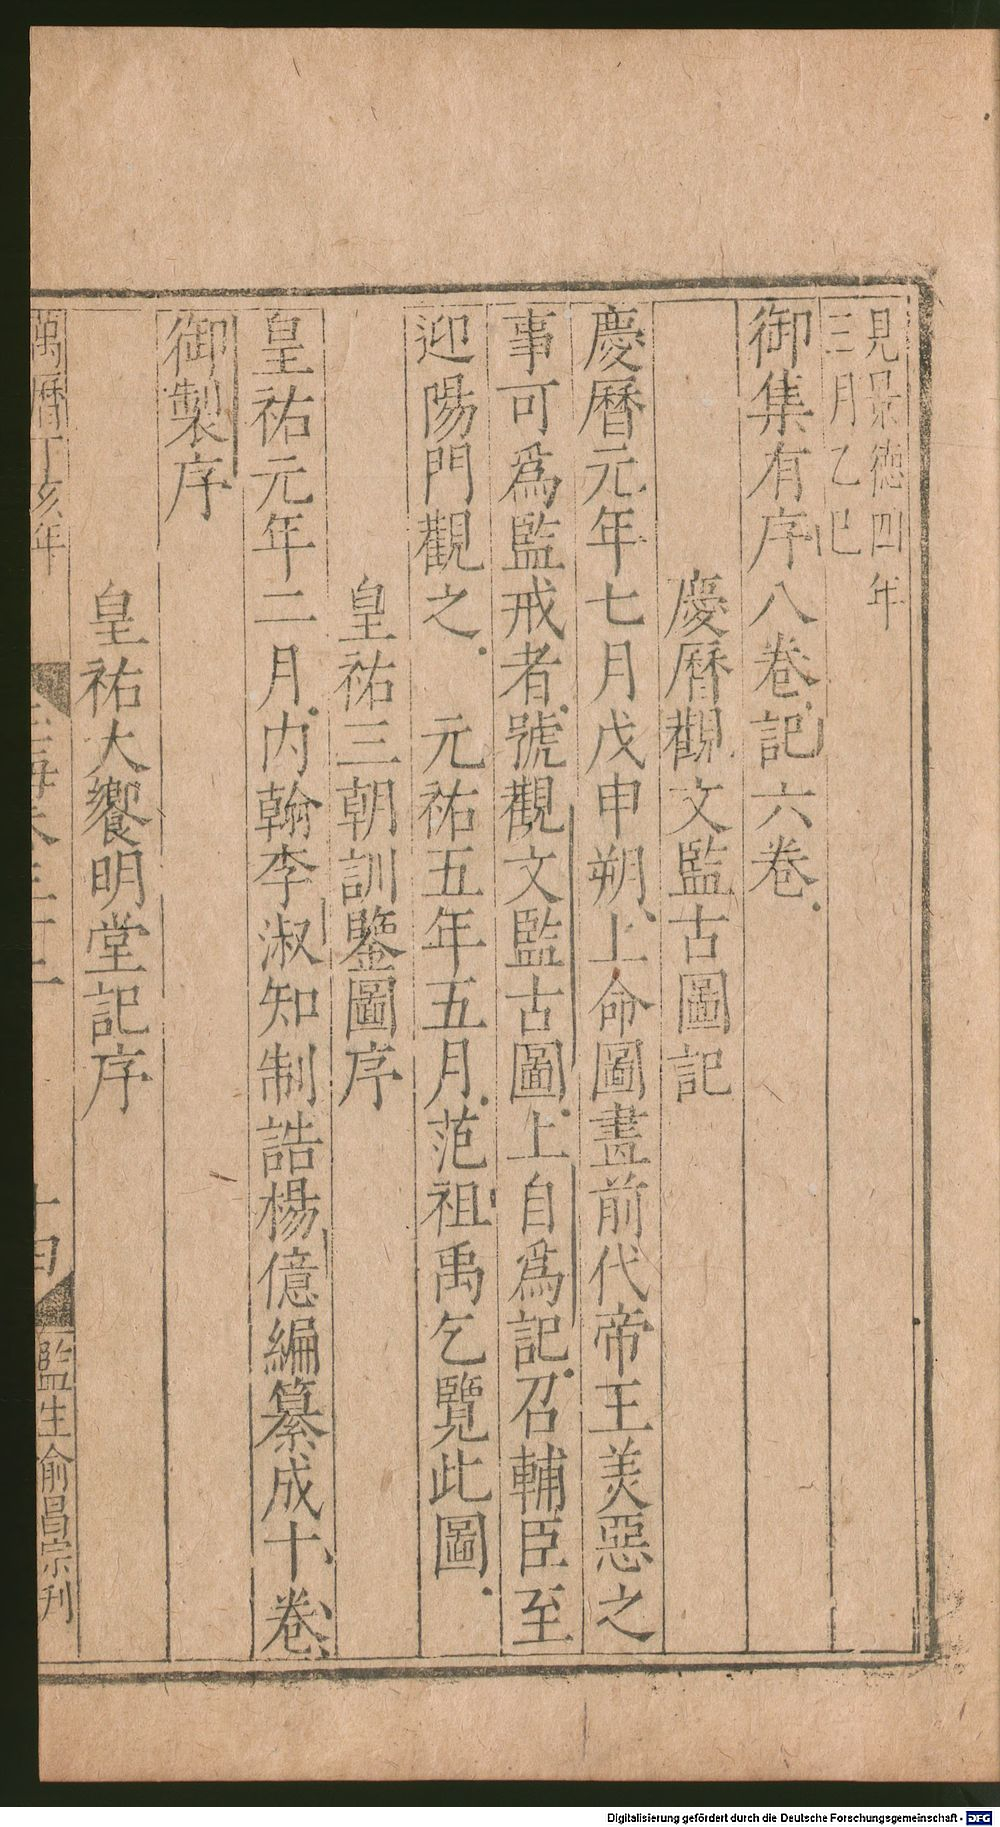 見景德四年
三月乙巳
御集有序八卷記六卷
慶曆觀文監古圖記
慶曆元年七月戊申朔上命圖畫前代帝王美惡之
事可為監戒者號觀文監古圖上自為記召輔臣至
迎陽門觀之　元祐五年五月范祖禹乞覽此圖
皇祐三朝訓鑒圖序
皇祐元年二月內翰李淑知制誥楊億編纂成十卷
御製序
皇祐大饗明堂記序
萬曆丁亥年
監生俞昌宗刊
Digitalisierung gefördert durch die Deutsche Forschungsgemeinschaft - DFG